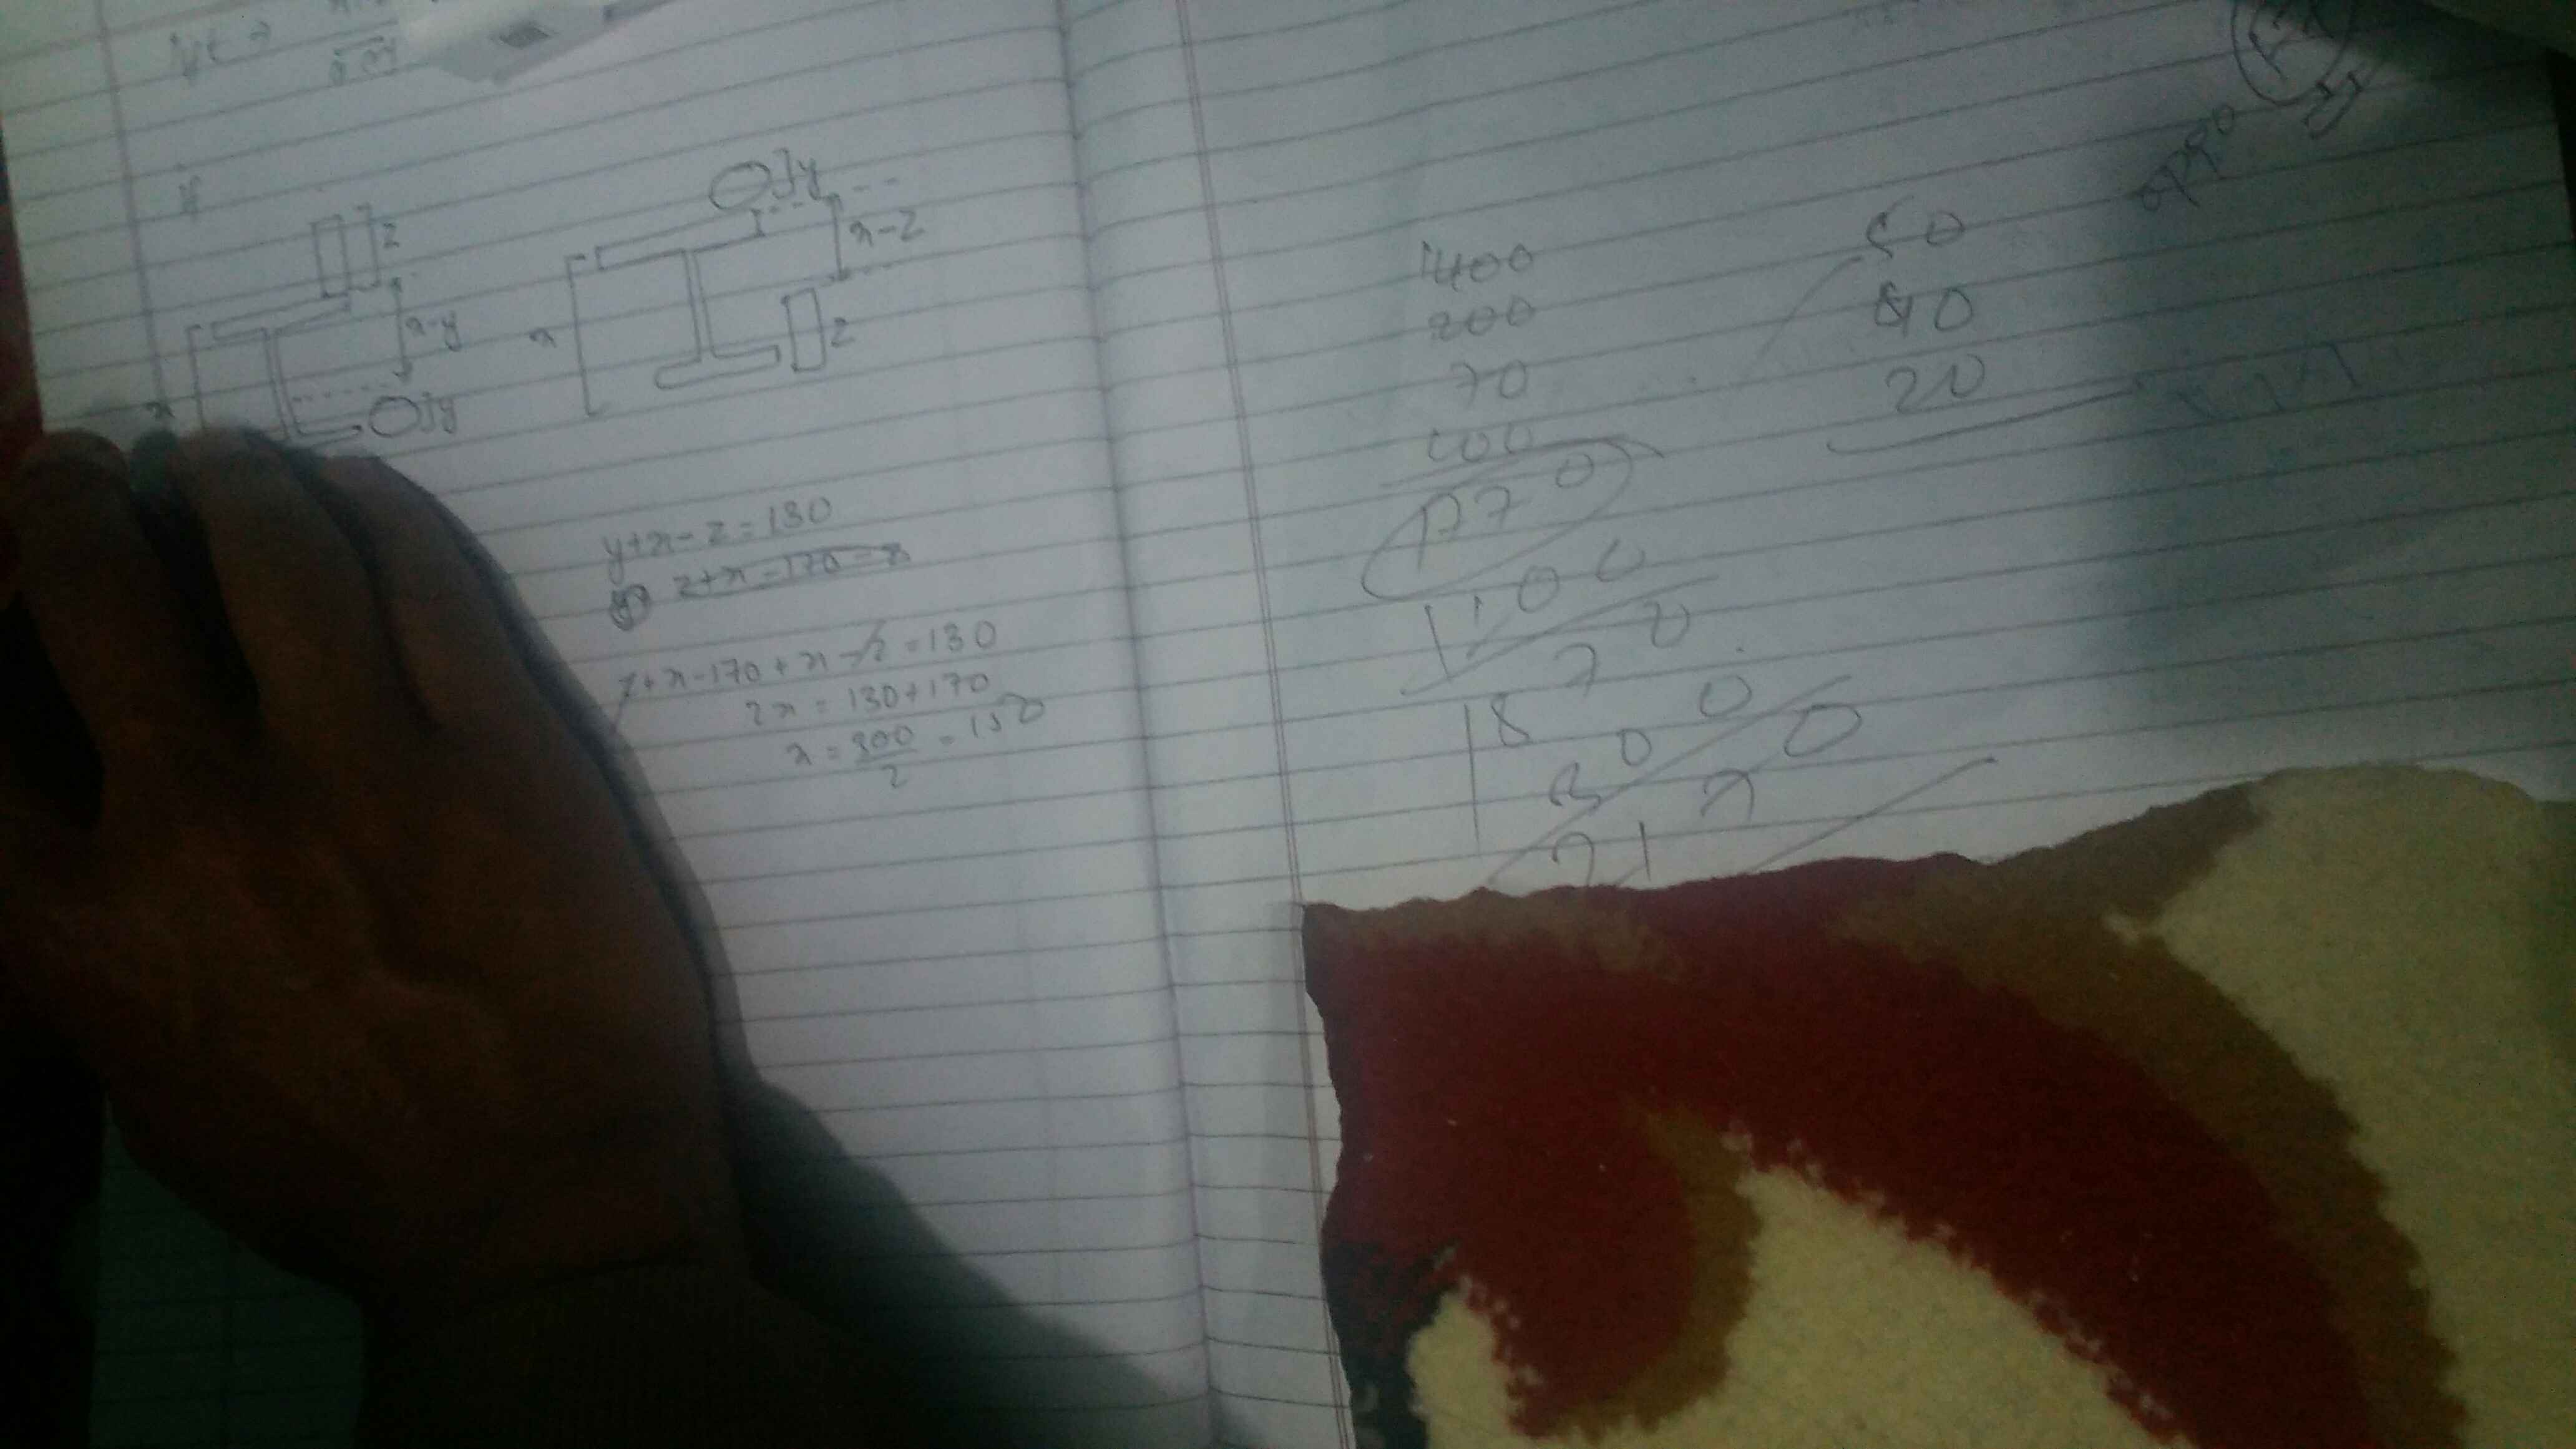 z
x-y
x
y
y
x-z
x
z
y+x-z=130
z+x-170=z
z+x-170+x-z=130
2x = 130+170
x = 300/2 = 150
1400
200
70
100
1770
1100
1870
300
2170
50
40
20